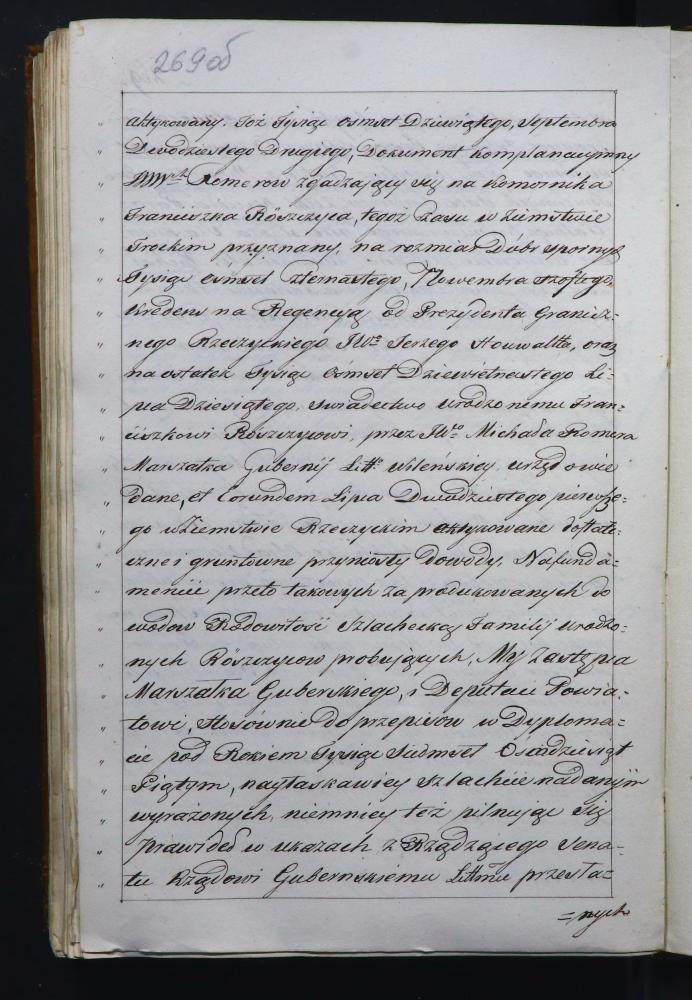 269 об
aktykowany. Toż Tysiąc ośmset Dziewiątego, Septembra
Dwódziestego Drugiego, Dokument Komplanacyynny
JWW<sup>ch</sup> Romerow zgadzaiący się na Komornika
Franciszka Rószczyca, tegoż czasu w Ziemstwie
Trockim przyznany, na rozmiar Dóbr spornych
Tysiąc ośmset czternastego, Nowembra szóstego,
Kredens na Regencyą od Prezydenta Granicz=
nego Rzeczyckiego JW<sup>o</sup> Jerzego Houwaltta, oraz
na ostatek Tysiąc ośmset Dziewietnastego Li=
pca Dziesiątego, swiadectwo urodzonemu Fran=
ciszkowi Rószczycowi, przez JW<sup>o</sup> Michała Romera
Marszałka Gubernij Litt: Wileńskiey urzędownie
dane, et Eorundem Lipca Dwudziestego pierwsze=
go w Ziemstwie Rzeczyckim aktykowane dostate=
czne i gruntowne przyniosły dowody. Na funda=
mencie przeto takowych za produkowanych do
wodow Rodowitość szlachecką Familij urodzo=
nych Rószczycow probuiących, My Zastępca
Marszałka Guberskiego, i Deputaci Powia=
towi, stosównie do przepisów w Dyploma=
cie pod Rokiem Tysiąc Siedmset Ośmdziesiąt
Piątym, nayłaskawiey szlachcie nadanym
wyrażonych, niemniey też pilnuiąc się
prawideł w ukazach z Rządzącego Sena=
tu Rządowi Gubernskiemu Littmu przesła=
=nych